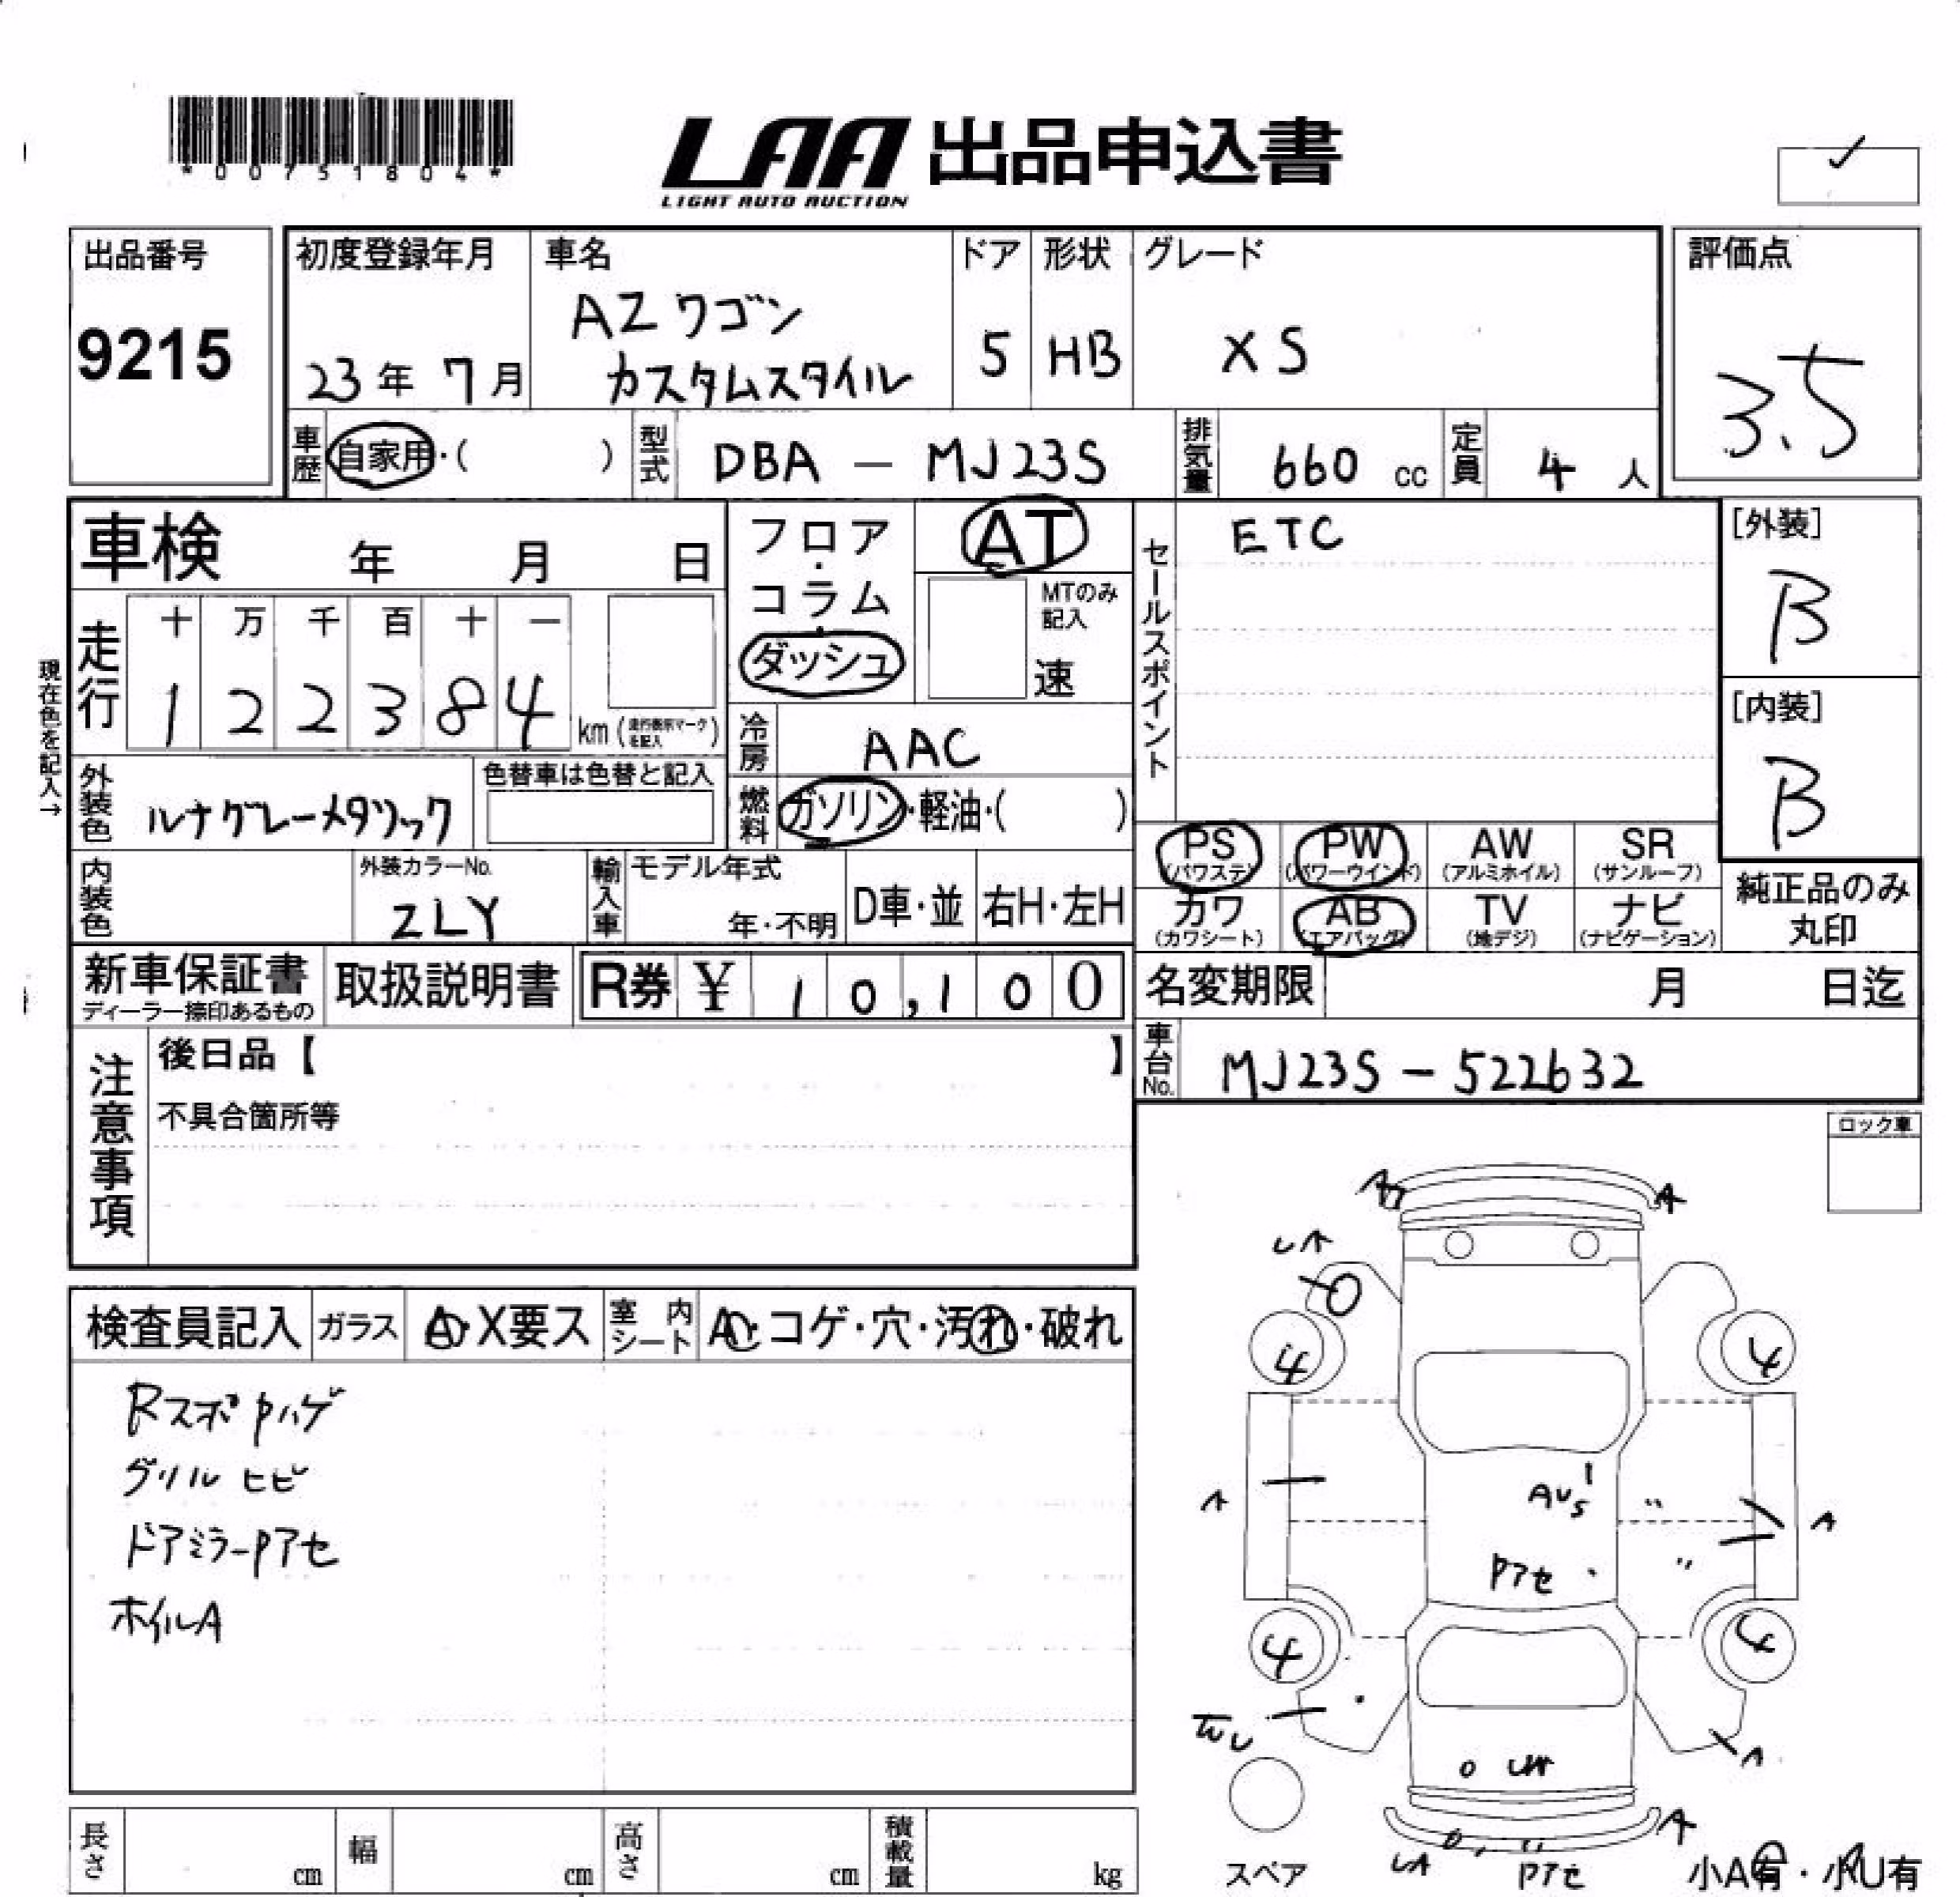 *00751804*
LAA 出品申込書
LIGHT AUTO AUCTION
出品番号
9215
初度登録年月
23年 7月
車名
AZワゴン
カスタムスタイル
ドア
5
形状
HB
グレード
XS
評価点
3.5
車歴
自家用・( )
型式
DBA - MJ23S
排気量
660 cc
定員
4 人
車検 年 月 日
フロア・コラム・ダッシュ
AT
MTのみ記入
速
セールスポイント
ETC
[外装]
B
[内装]
B
現在色を記入→
走行
十 万 千 百 十 一
1 2 2 3 8 4 km (走行表示マークを記入)
冷房
AAC
外装色
ルナグレーメタリック
色替車は色替と記入
燃料
ガソリン・軽油・( )
PS (パワステ)
PW (パワーウインド)
AW (アルミホイル)
SR (サンルーフ)
カワ (カワシート)
AB (エアバッグ)
TV (地デジ)
ナビ (ナビゲーション)
純正品のみ丸印
内装色
外装カラーNo.
ZLY
輸入車
モデル年式
年・不明
D車・並
右H・左H
新車保証書
ディーラー捺印あるもの
取扱説明書
R券 ¥ 10,100
名変期限 月 日迄
車台No.
MJ23S - 522632
注意事項
後日品【 】
不具合箇所等
ロック車
検査員記入
ガラス
A・X要ス
室内シート
A・コゲ・穴・汚れ・破れ
RスポPハゲ
グリル ヒビ
ドアミラーPアセ
ホイルA
A
UA
4
4
A
AUS
〃
A
Pアセ
〃
4
4
A
UA
A
UA
〃
Pアセ
スペア
小A有・小U有
長さ cm
幅 cm
高さ cm
積載量 kg